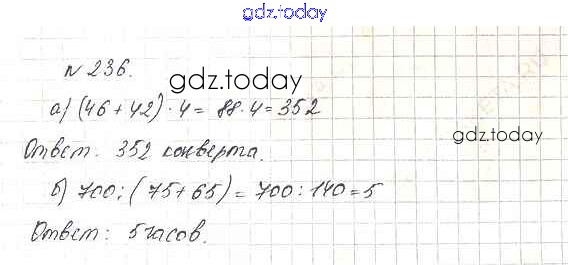 gdz.today
№ 236.
gdz.today
а) (46 + 42) · 4 = 88 · 4 = 352
gdz.today
Ответ. 352 конверта.
б) 700 : (75 + 65) = 700 : 140 = 5
Ответ: 5 часов.